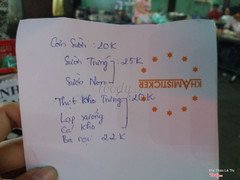 Cơm Sườn : 20K
Sườn Trứng : 25K
Sườn Non
Thịt kho Trứng : 20K
Lạp xưởng
Cá kho
Ba rọi 22K
KHAMISTICKER
foody